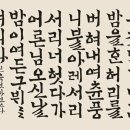 밤을한허리를
버혀내여춘풍
니블아레서리
서리너헛다가
어른님오신날
밤이여든구뷔